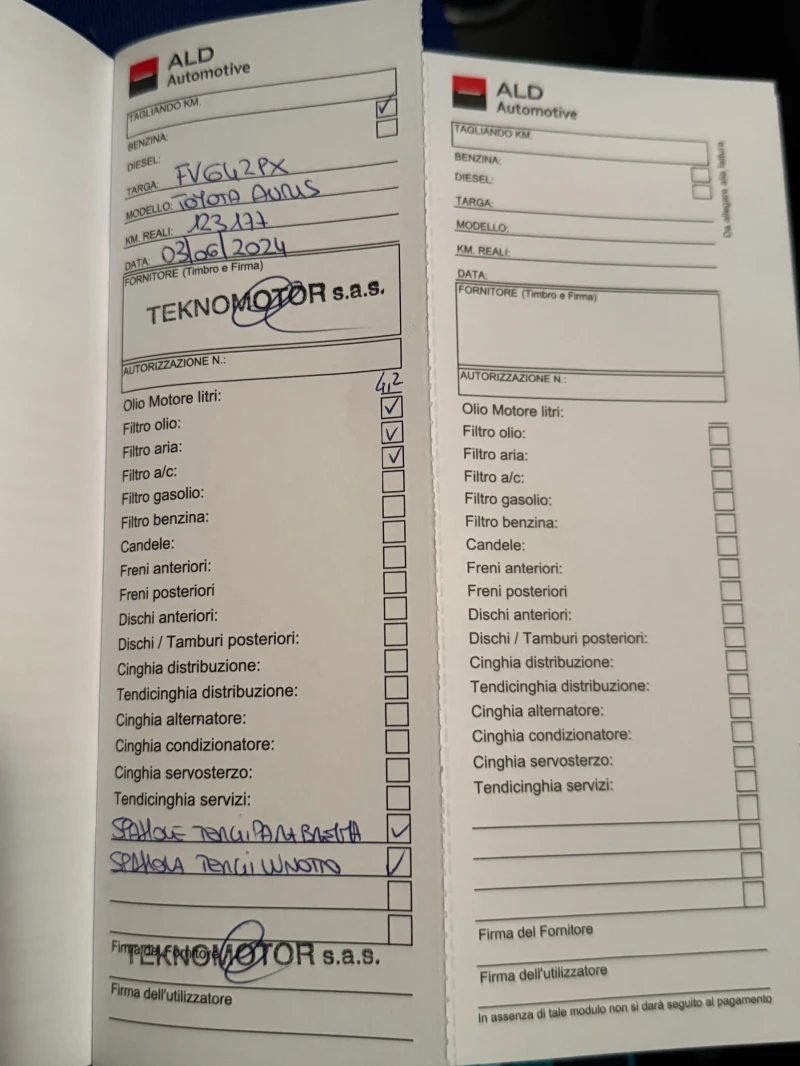 ALD
Automotive
TAGLIANDO KM.
BENZINA: ✓
DIESEL:
TARGA: FVG42PX
MODELLO: TOYOTA AURIS
KM. REALI: 123177
DATA: 03/06/2024
FORNITORE (Timbro e Firma)
TEKNOMOTOR s.a.s.
AUTORIZZAZIONE N.:
Olio Motore litri: 4,2
Filtro olio: ✓
Filtro aria: ✓
Filtro a/c: ✓
Filtro gasolio:
Filtro benzina:
Candele:
Freni anteriori:
Freni posteriori
Dischi anteriori:
Dischi / Tamburi posteriori:
Cinghia distribuzione:
Tendicinghia distribuzione:
Cinghia alternatore:
Cinghia condizionatore:
Cinghia servosterzo:
Tendicinghia servizi:
SPAZZOLE TERGIPARABREZZA ✓
SPAZZOLA TERGILUNOTTO ✓
Firma del Fornitore
TEKNOMOTOR s.a.s.
Firma dell'utilizzatore
ALD
Automotive
TAGLIANDO KM.
BENZINA:
DIESEL:
TARGA:
MODELLO:
KM. REALI:
DATA:
FORNITORE (Timbro e Firma)
AUTORIZZAZIONE N.:
Olio Motore litri:
Filtro olio:
Filtro aria:
Filtro a/c:
Filtro gasolio:
Filtro benzina:
Candele:
Freni anteriori:
Freni posteriori
Dischi anteriori:
Dischi / Tamburi posteriori:
Cinghia distribuzione:
Tendicinghia distribuzione:
Cinghia alternatore:
Cinghia condizionatore:
Cinghia servosterzo:
Tendicinghia servizi:
Firma del Fornitore
Firma dell'utilizzatore
In assenza di tale modulo non si darà seguito al pagamento
Da allegare alla fattura